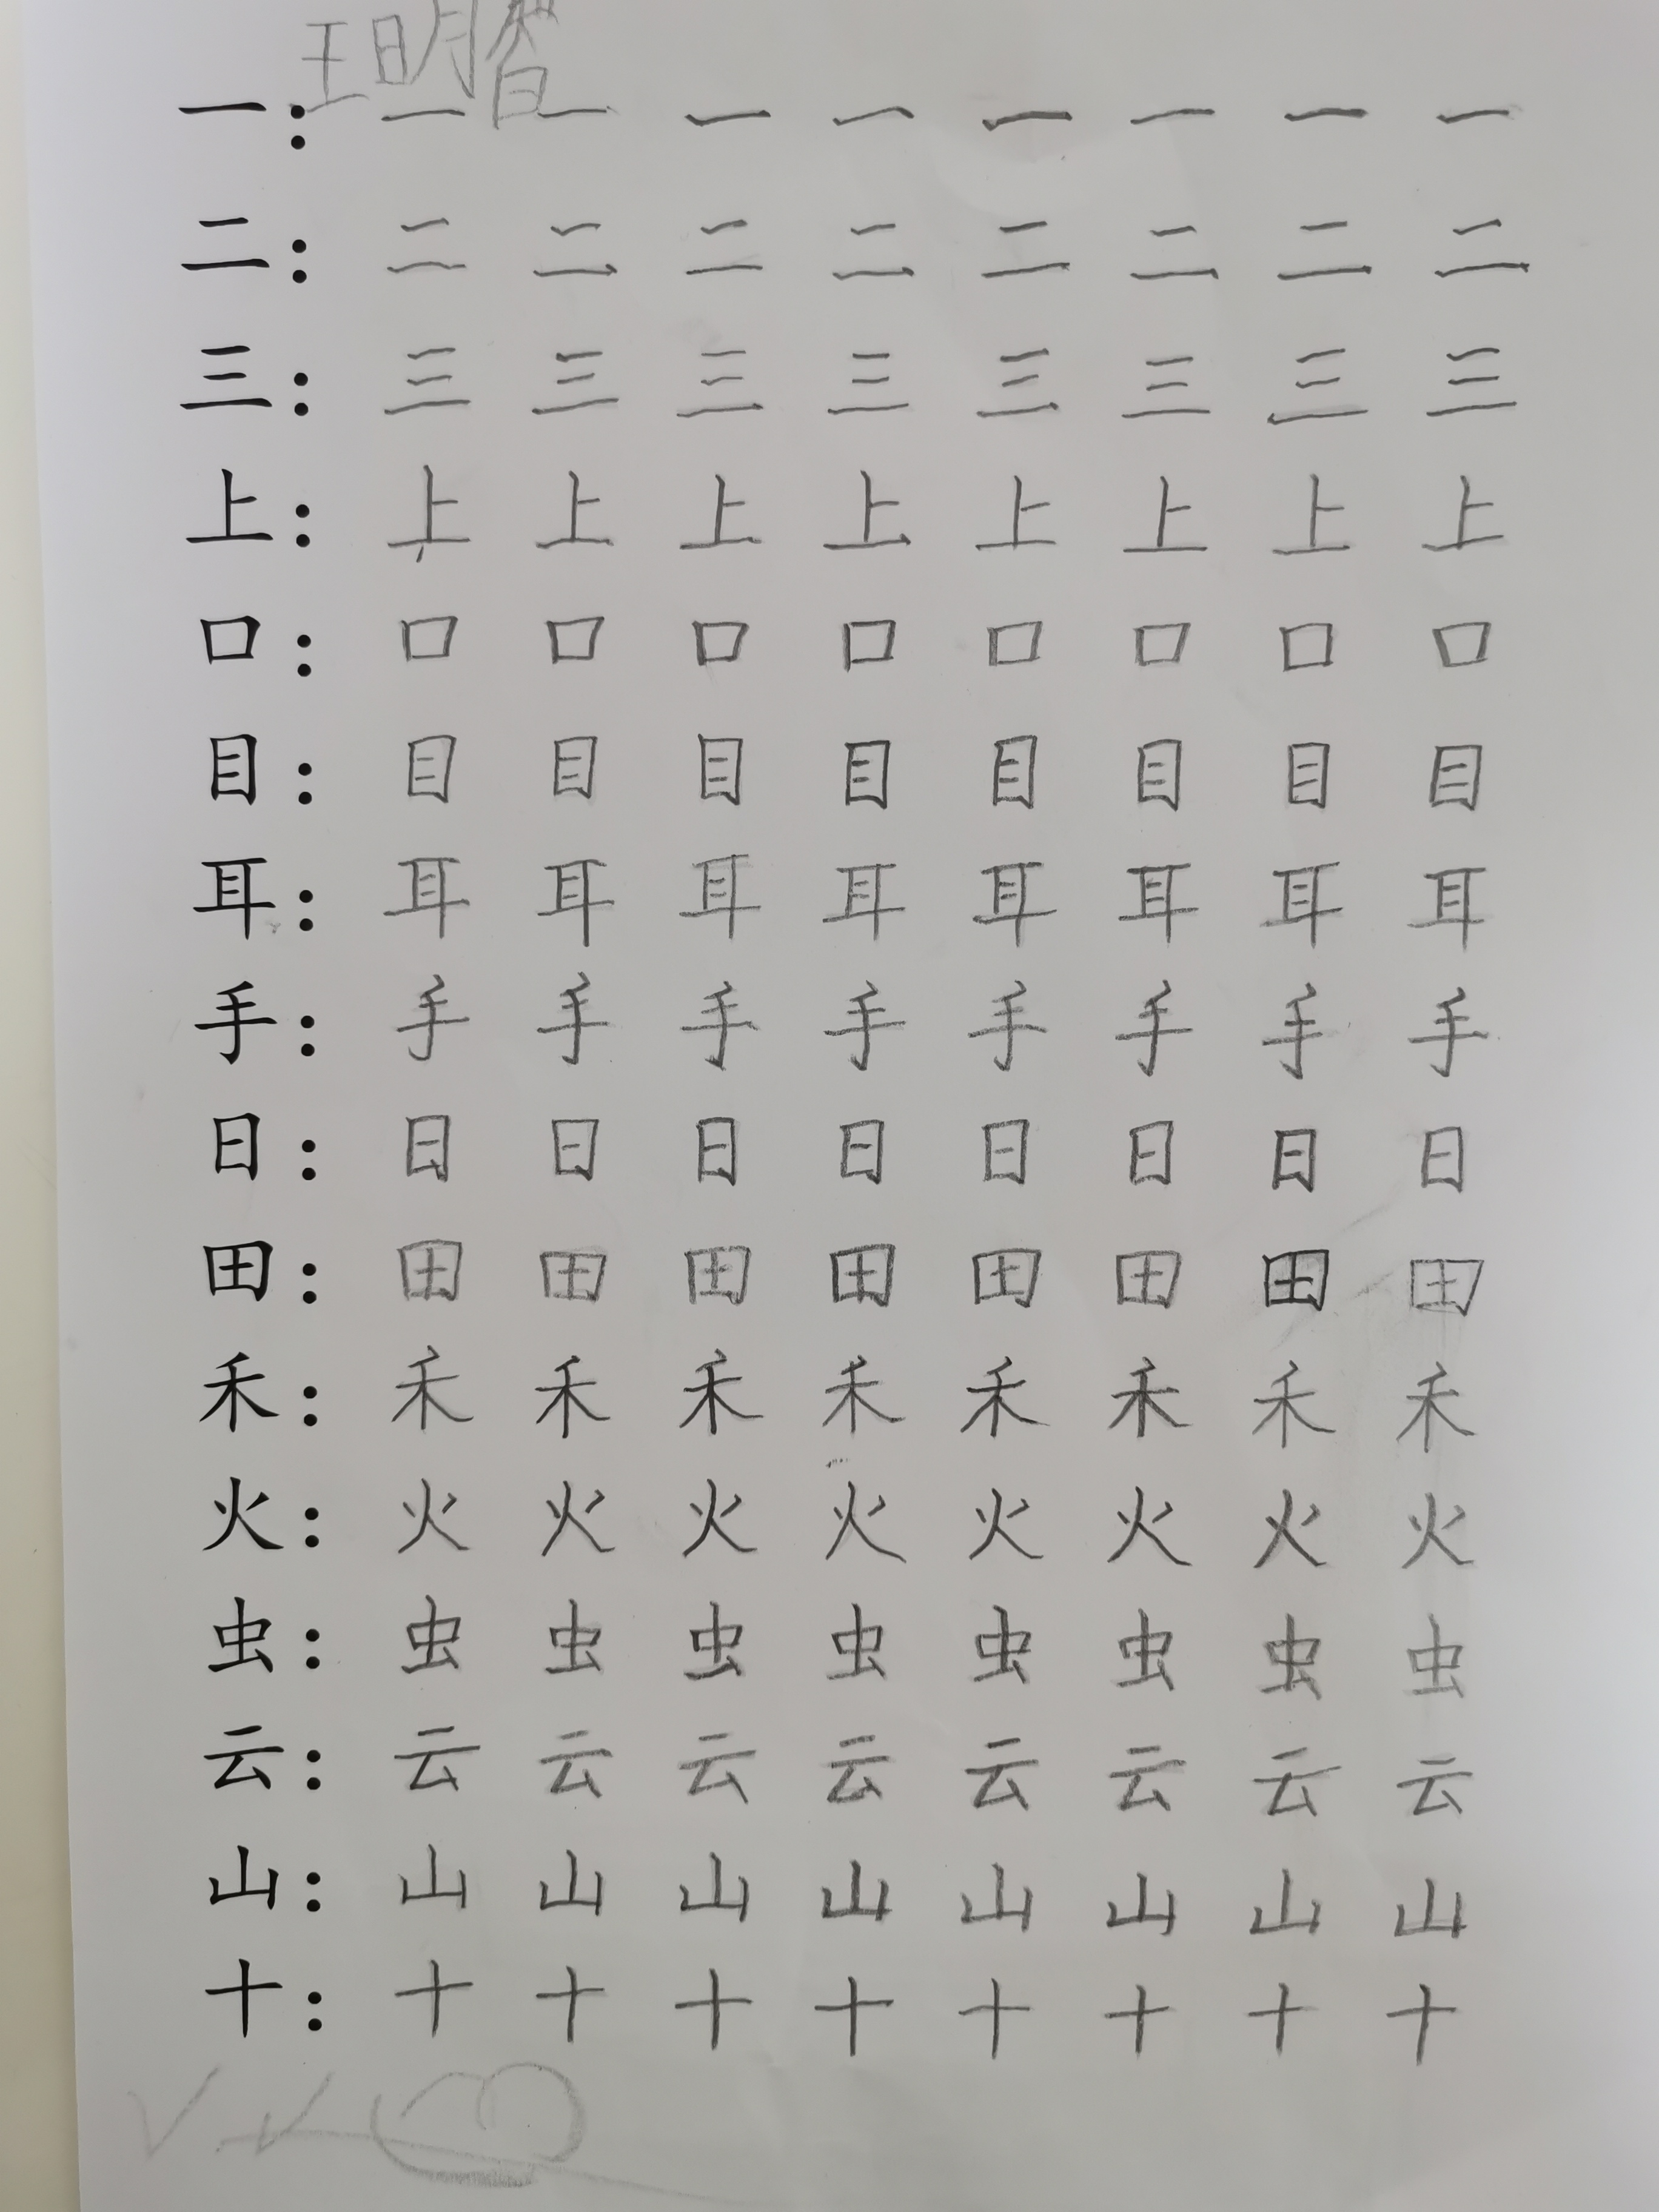 王明智
一：一 一 一 一 一 一 一 一
二：二 二 二 二 二 二 二 二
三：三 三 三 三 三 三 三 三
上：上 上 上 上 上 上 上 上
口：口 口 口 口 口 口 口 口
目：目 目 目 目 目 目 目 目
耳：耳 耳 耳 耳 耳 耳 耳 耳
手：手 手 手 手 手 手 手 手
日：日 日 日 日 日 日 日 日
田：田 田 田 田 田 田 田 田
禾：禾 禾 禾 禾 禾 禾 禾 禾
火：火 火 火 火 火 火 火 火
虫：虫 虫 虫 虫 虫 虫 虫 虫
云：云 云 云 云 云 云 云 云
山：山 山 山 山 山 山 山 山
十：十 十 十 十 十 十 十 十